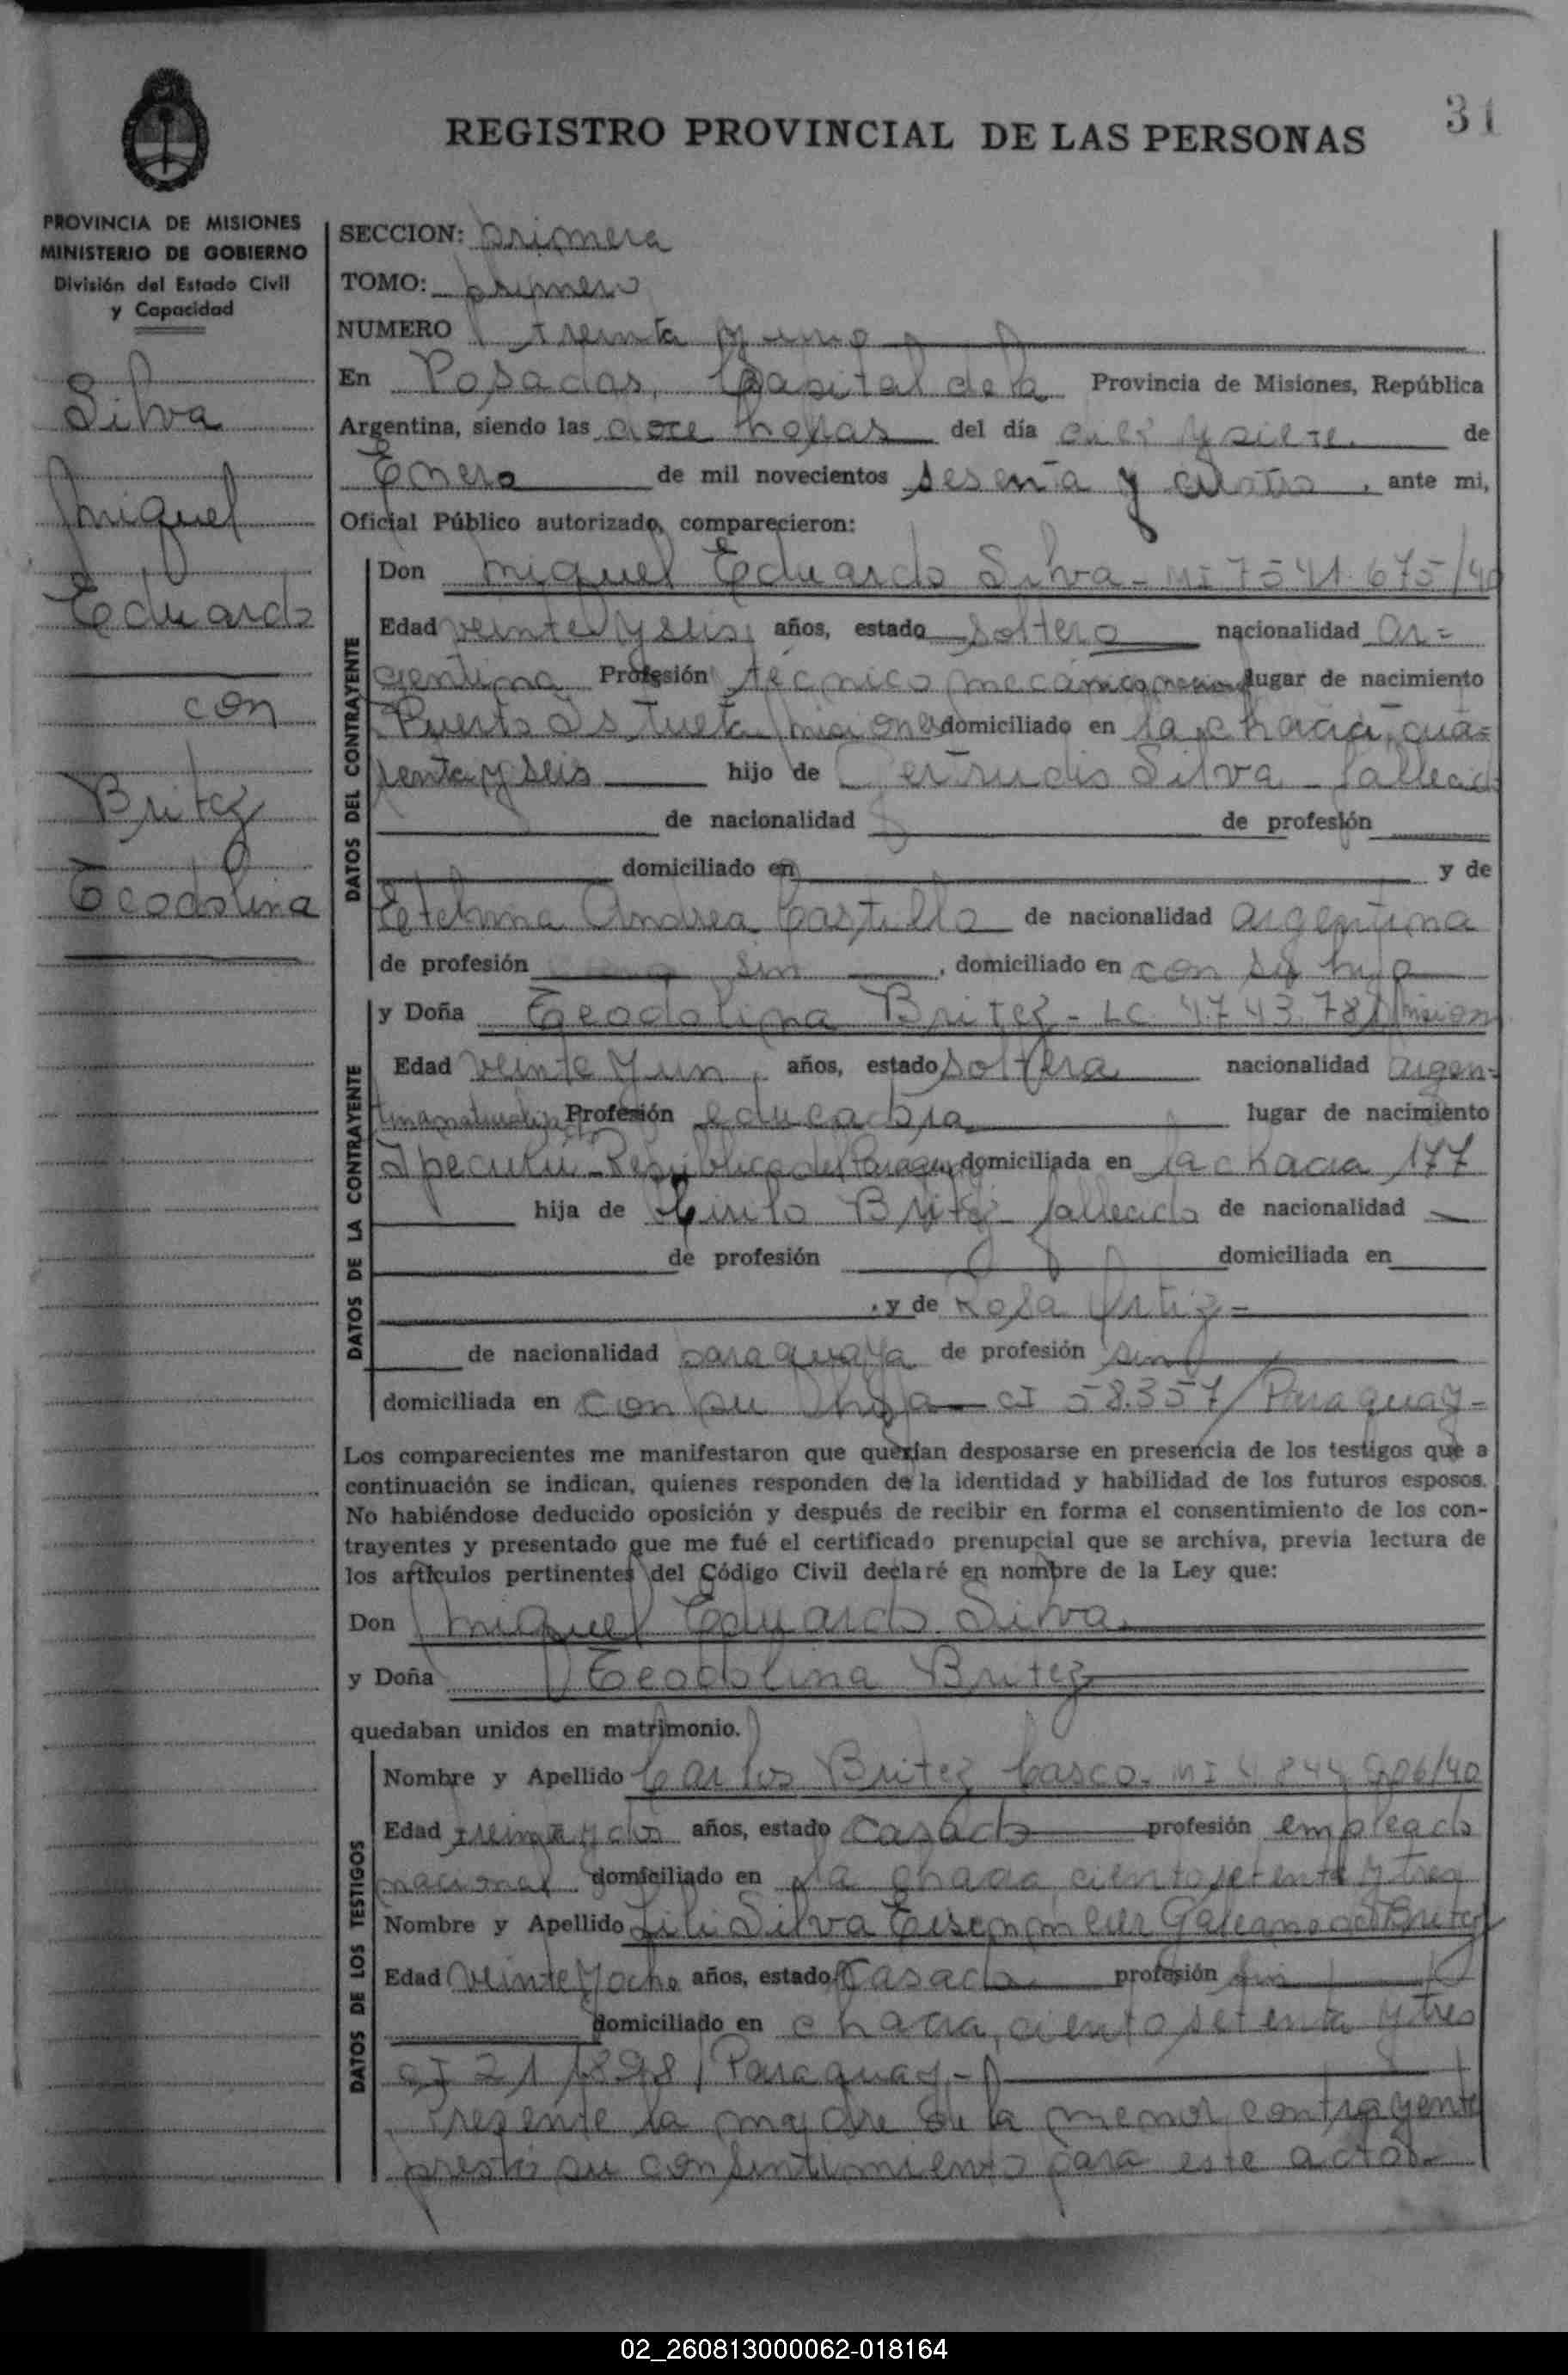 31
REGISTRO PROVINCIAL DE LAS PERSONAS
PROVINCIA DE MISIONES
MINISTERIO DE GOBIERNO
División del Estado Civil
y Capacidad
Silva
Miguel
Eduardo
con
Britez
Teodolina
SECCION: primera
TOMO: primero
NUMERO treinta y uno
En Posadas, Capital de la Provincia de Misiones, República
Argentina, siendo las doce horas del día diez y siete de
Enero de mil novecientos sesenta y cuatro, ante mi,
Oficial Público autorizado, comparecieron:
DATOS DEL CONTRAYENTE
Don Miguel Eduardo Silva - MI 7541.675/40
Edad veinte y seis, años, estado soltero nacionalidad ar=
gentina Profesión técnico mecánico lugar de nacimiento
Puerto Misiones domiciliado en la chacra cua=
renta y seis hijo de Gertrudis Silva - fallecido
de nacionalidad de profesión
domiciliado en y de
Etelvina Andrea Castillo de nacionalidad argentina
de profesión sin, domiciliado en con su hijo
DATOS DE LA CONTRAYENTE
y Doña Teodolina Britez - LC 4.743.781/Mision
Edad veinte y un, años, estado soltera nacionalidad argen-
tina Profesión educadora lugar de nacimiento
República del Paraguay domiciliada en la chacra 177
hija de Cirilo Britez fallecido de nacionalidad
de profesión domiciliada en
, y de Rosa Ortiz =
de nacionalidad paraguaya de profesión sin
domiciliada en con su hija - CI 58.357/Paraguay -
Los comparecientes me manifestaron que querían desposarse en presencia de los testigos que a
continuación se indican, quienes responden de la identidad y habilidad de los futuros esposos.
No habiéndose deducido oposición y después de recibir en forma el consentimiento de los con-
trayentes y presentado que me fué el certificado prenupcial que se archiva, previa lectura de
los artículos pertinentes del Código Civil declaré en nombre de la Ley que:
Don Miguel Eduardo Silva
y Doña Teodolina Britez
quedaban unidos en matrimonio.
DATOS DE LOS TESTIGOS
Nombre y Apellido Carlos Britez Casco - MI 4.844.906/40
Edad treinta y dos años, estado casado profesión empleado
nacional domiciliado en la chacra ciento setenta y tres
Nombre y Apellido Lili Silva Galeano de Britez
Edad veinte y ocho años, estado casada profesión sin
domiciliado en chacra, ciento setenta y tres
CI 211898/Paraguay -
Presente la madre de la menor contrayente
prestó su consentimiento para este acto -
02_260813000062-018164